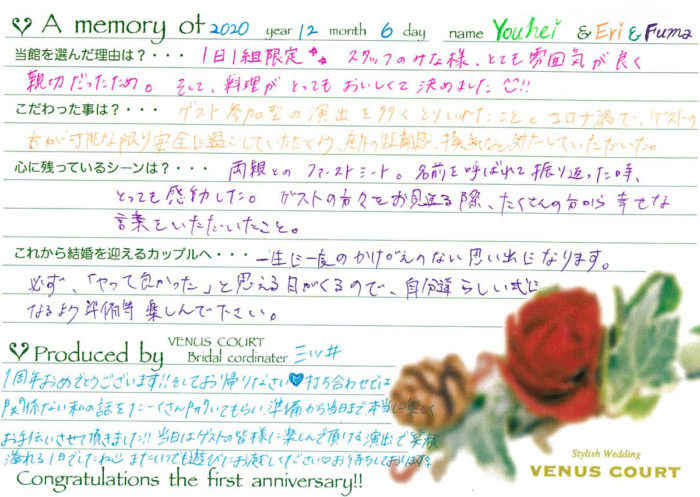 A memory of 2020 year 12 month 6 day name Youhei & Eri & Fuma
当館を選んだ理由は？・・・ 1日1組限定 スタッフのみな様、とても雰囲気が良く
親切だったため。そして、料理がとってもおいしくて決めました!!
こだわった事は？・・・ ゲスト参加型の演出を多くとりいれたこと。コロナ禍で、ゲストの
方が可能な限り安全に過ごしていただくよう、座席の距離感、換気など対応していただいた。
心に残っているシーンは？・・・ 両親とのファーストミート。名前を呼ばれて振り返った時、
とっても感動した。ゲストの方々をお見送る際、たくさんの方から幸せな
言葉をいただいたこと。
これから結婚を迎えるカップルへ・・・ 一生に一度のかけがえのない思い出になります。
必ず、「やって良かった」と思える日がくるので、自分達らしい式に
なるよう準備等楽しんで下さい。
Produced by VENUS COURT Bridal cordinater 三ツ井
1周年おめでとうございます!!そしてお帰りなさい♥打ち合わせでは
関係ない私の話をたーくさん聞いてもらい準備から当日まで本当に楽しく
お手伝いさせて頂きました!!当日はゲストの皆様に楽しんで頂ける演出で笑顔
溢れる1日でしたね またいつでも遊びにお越しください♡お待ちしております
Congratulations the first anniversary!!
Stylish Wedding
VENUS COURT